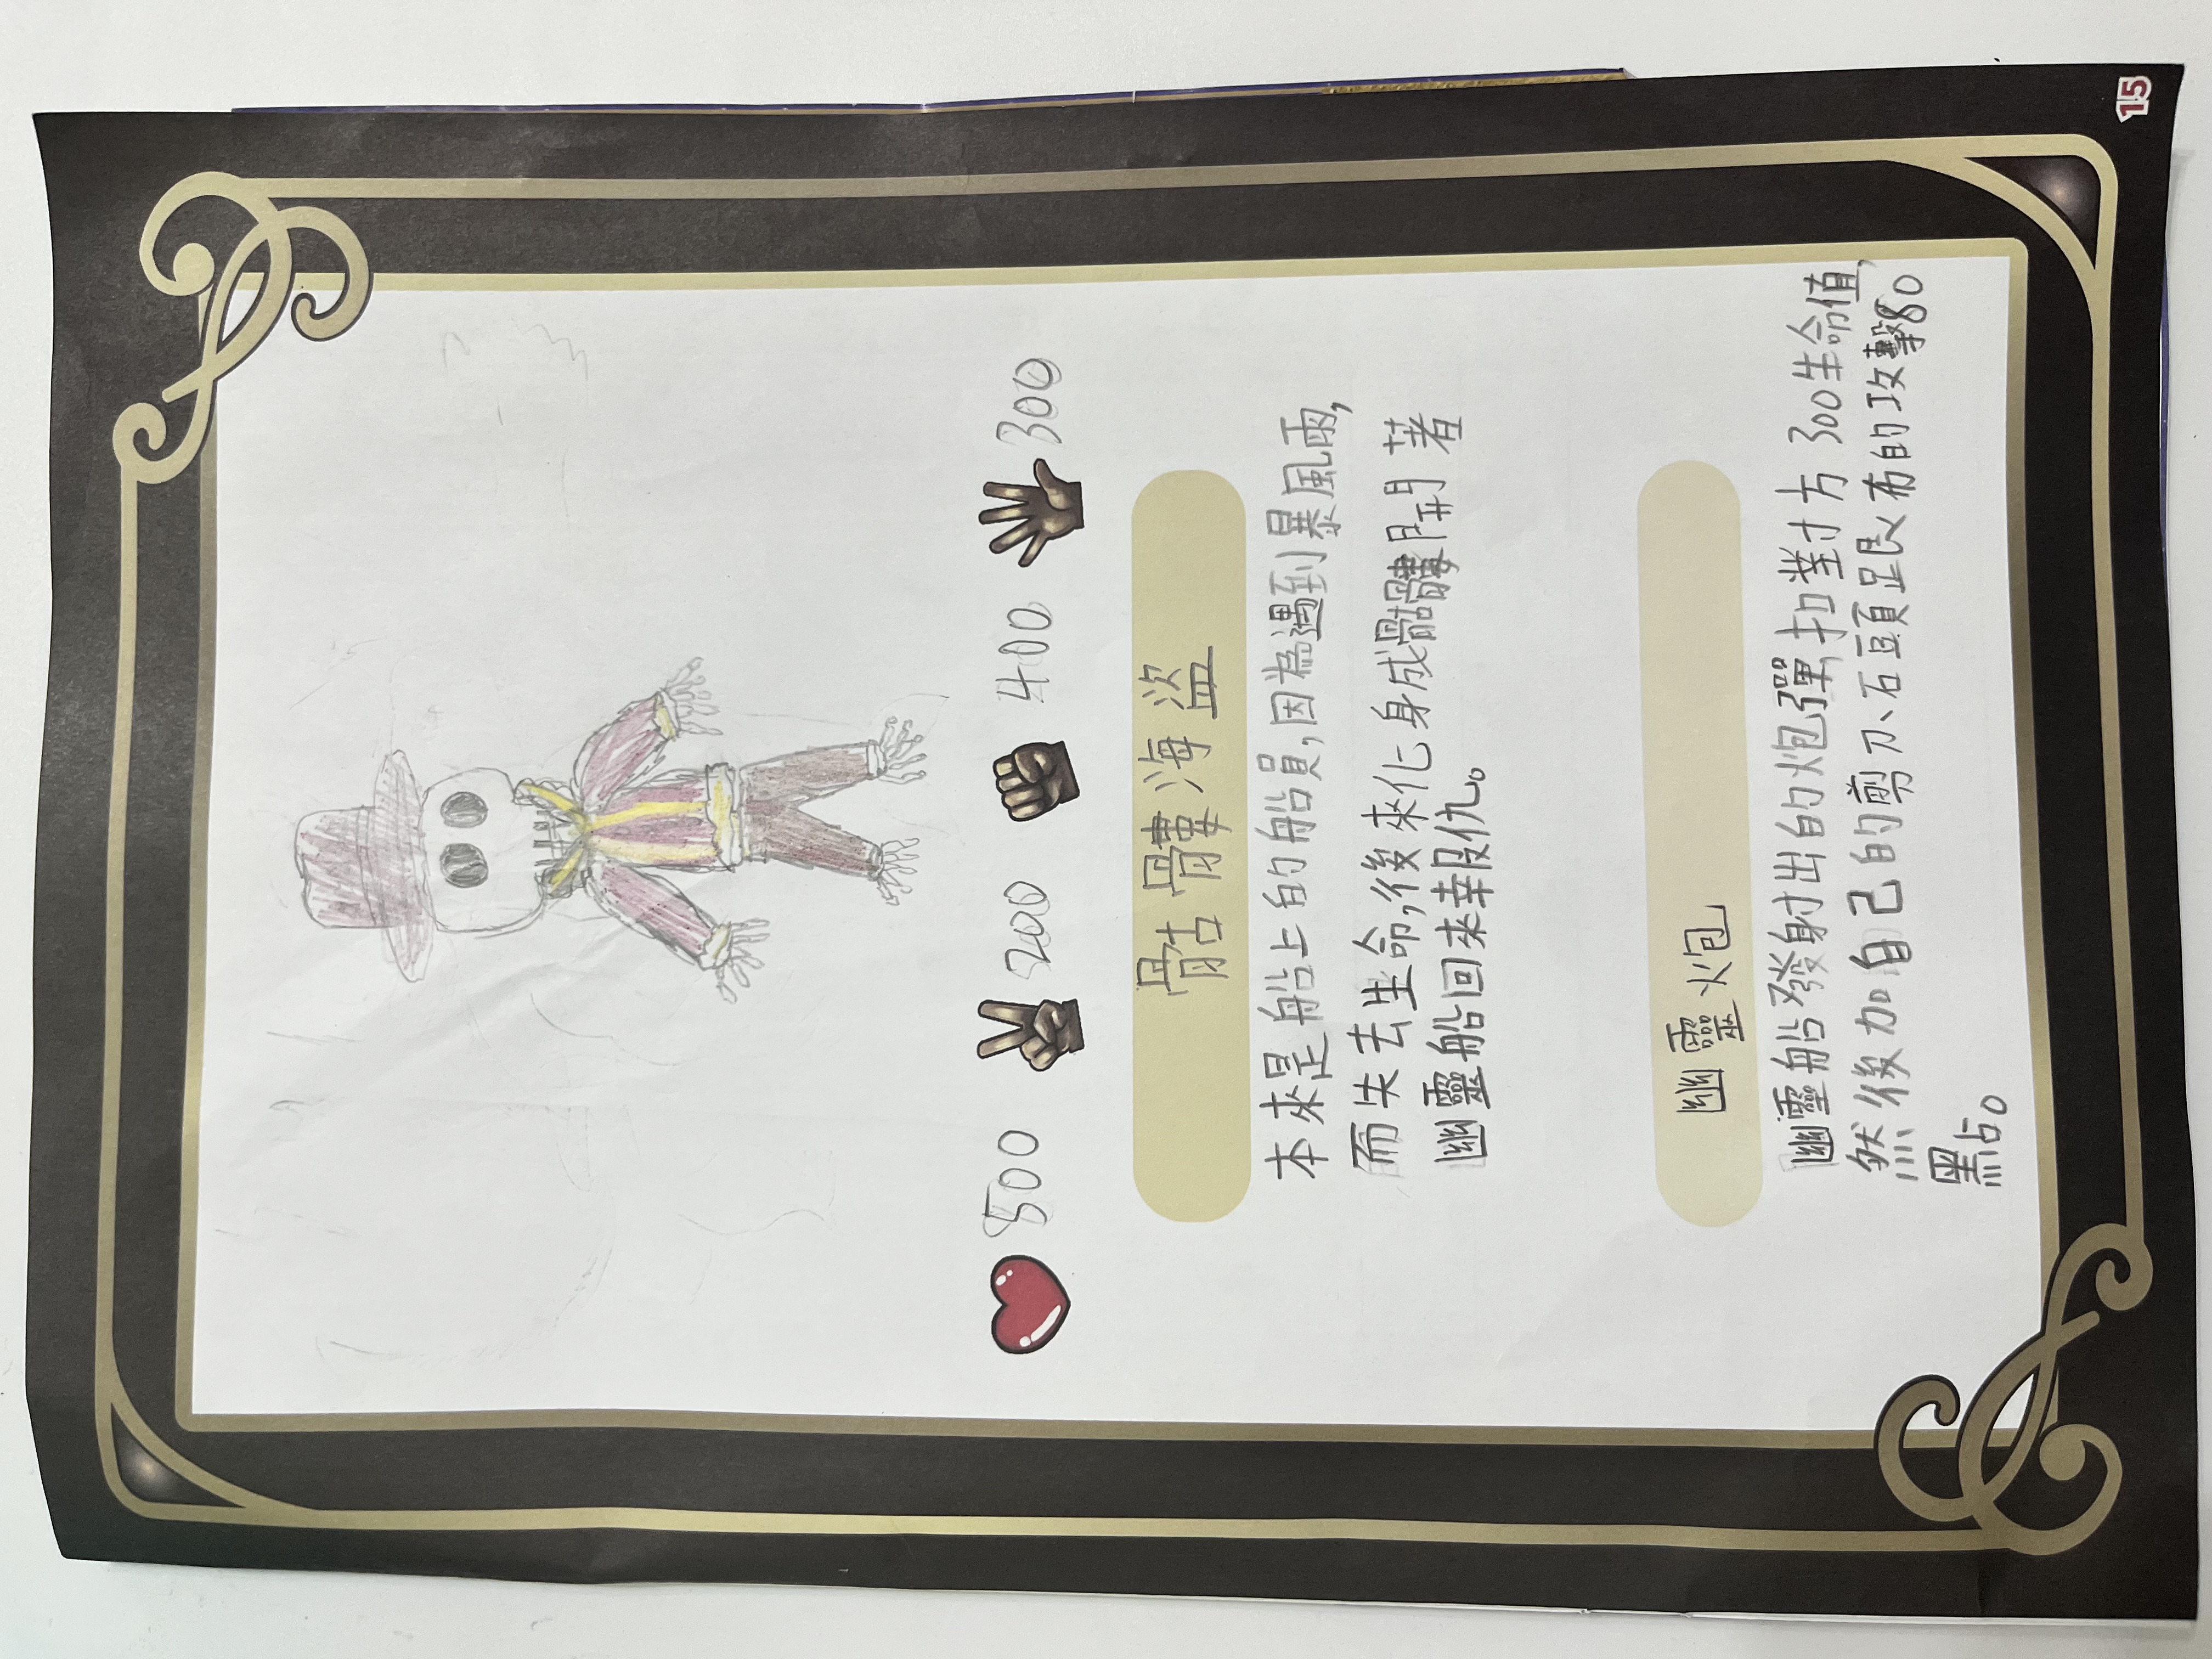 500 200 400 300
骷髏海盜
本來是船上的船員,因為遇到暴風雨,
而失去生命,後來化身成骷髏開著
幽靈船回來報仇。
幽靈炮
幽靈船發射出的炮彈,扣對方300生命值,
然後加自己的剪刀、石頭跟布的攻擊80
點。
15